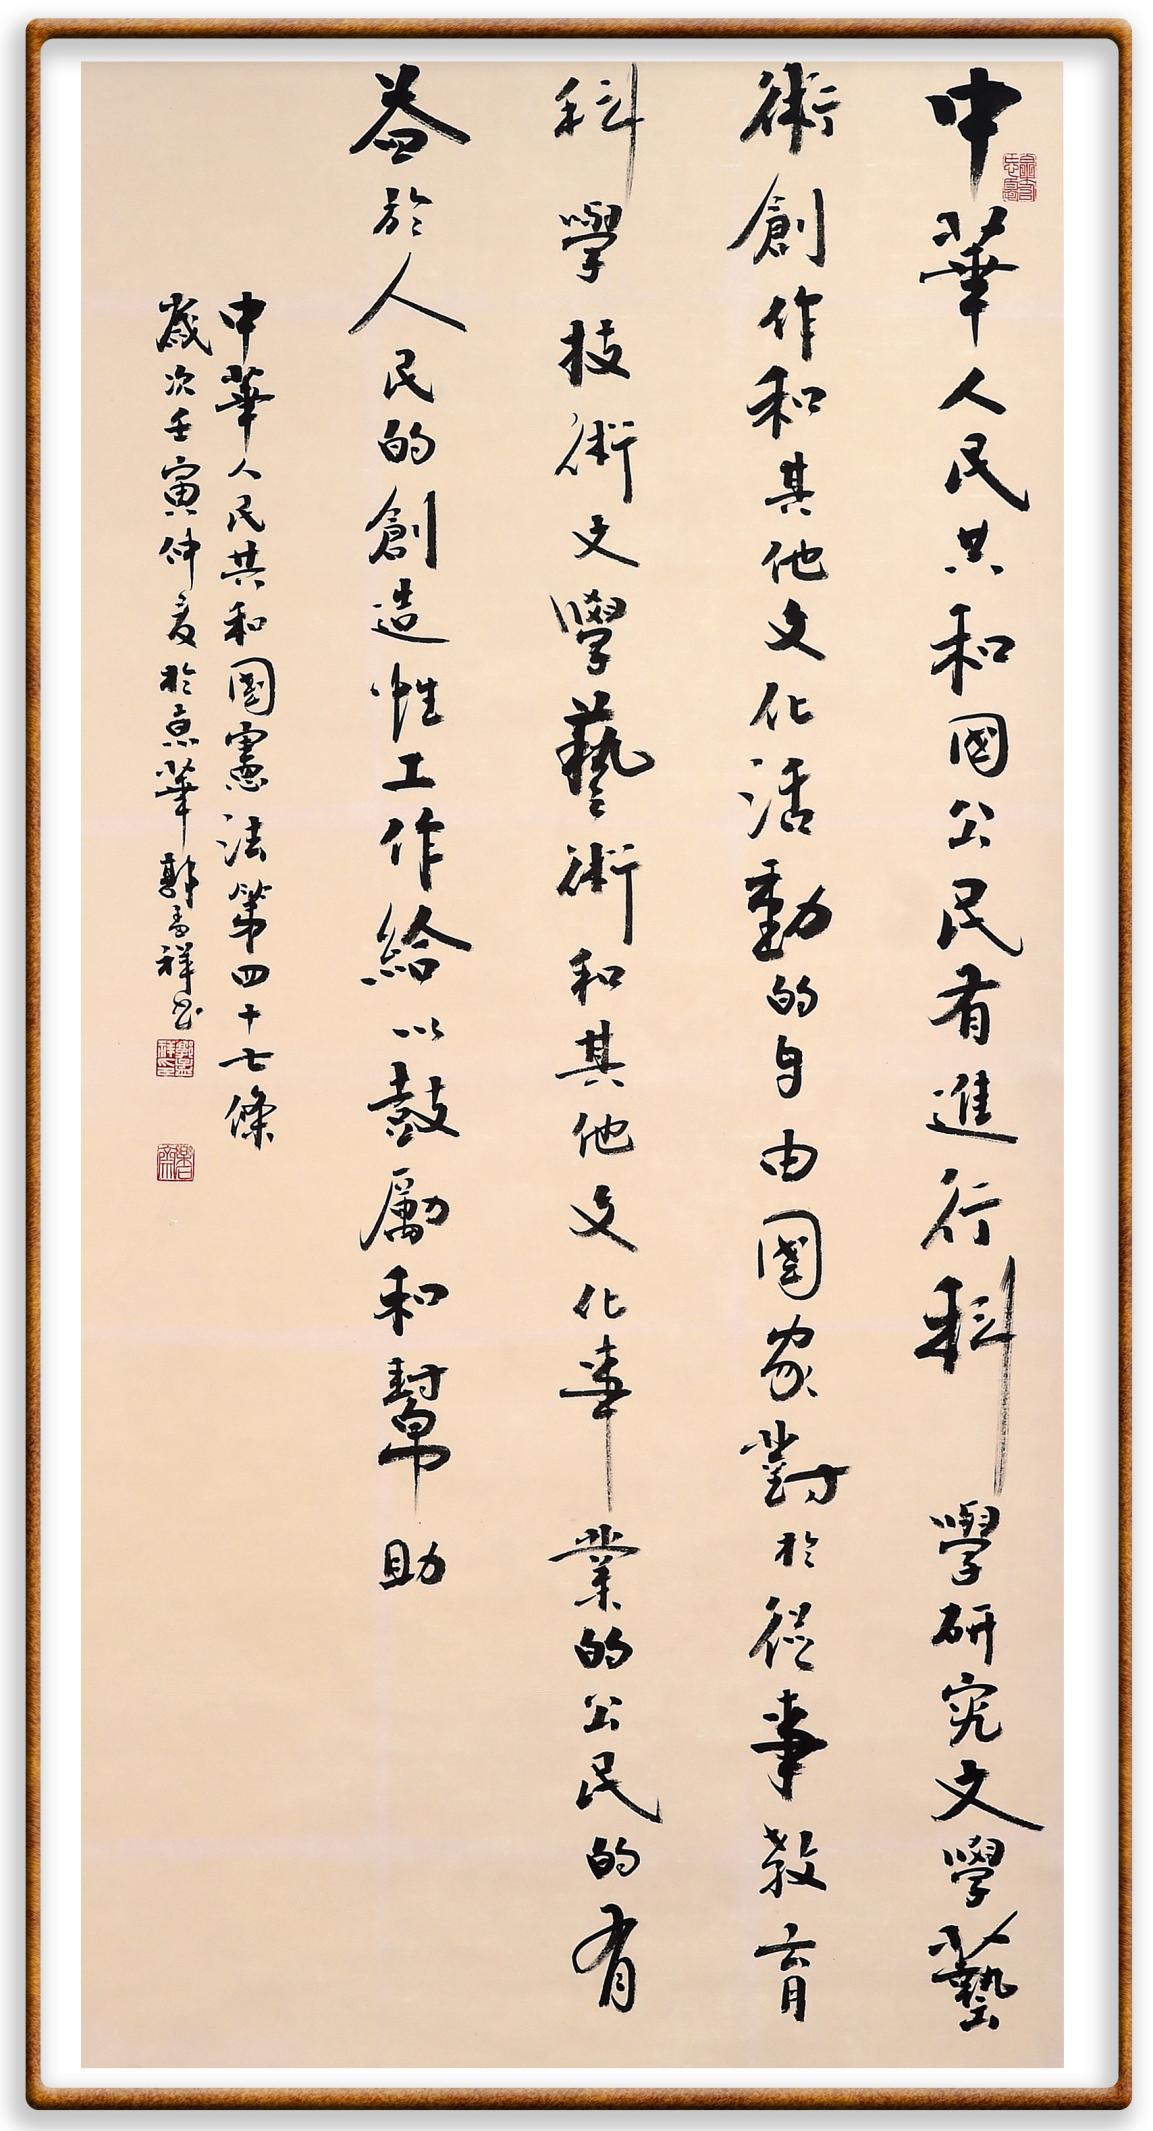 中華人民共和國公民有進行科學研究文學藝
術創作和其他文化活動的自由國家對於從事教育
科學技術文學藝術和其他文化事業的公民的有
益於人民的創造性工作給以鼓勵和幫助
中華人民共和國憲法第四十七條
歲次壬寅仲夏於京華郭孟祥書